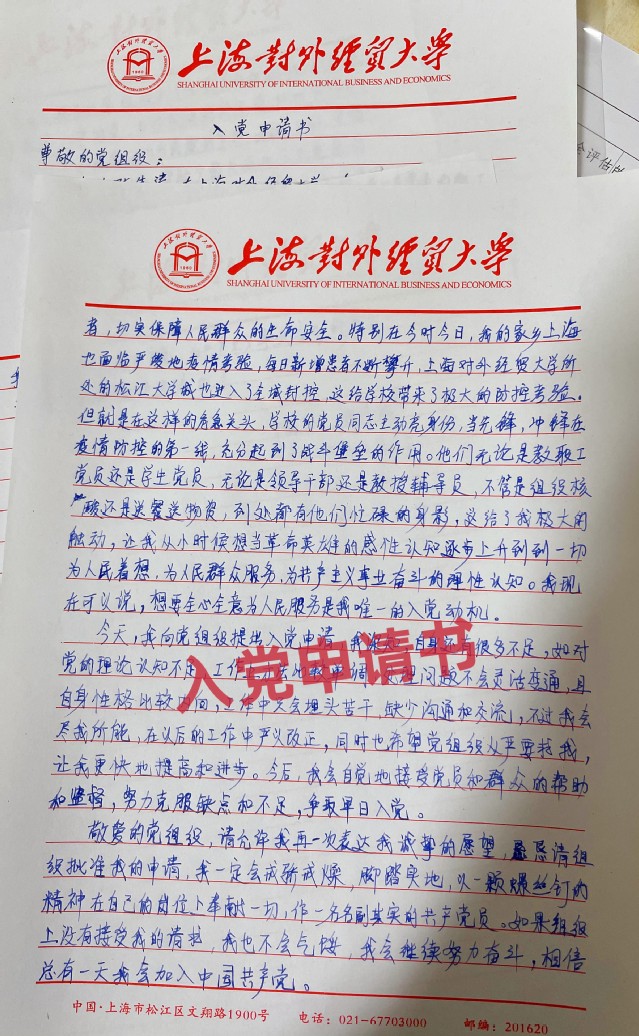 上海对外经贸大学
SHANGHAI UNIVERSITY OF INTERNATIONAL BUSINESS AND ECONOMICS
入党申请书
尊敬的党组织：
上海对外经贸大学
SHANGHAI UNIVERSITY OF INTERNATIONAL BUSINESS AND ECONOMICS
者，切实保障人民群众的生命安全。特别在今时今日，我的家乡上海
也面临严峻地疫情考验，每日新增患者不断攀升，上海对外经贸大学所
处的松江大学城也进入了全域封控，这给学校带来了极大的防控考验。
但就是在这样的危急关头，学校的党员同志主动亮身份，当先锋，冲锋在
疫情防控的第一线，充分起到了战斗堡垒的作用。他们无论是教职工
党员还是学生党员，无论是领导干部还是教授辅导员，不管是组织核
酸还是送餐送物资，到处都有他们忙碌的身影，这给了我极大的
触动，让我从小时候想当革命英雄的感性认知逐步上升到到一切
为人民着想，为人民群众服务，为共产主义事业奋斗的理性认知。我现
在可以说，想要全心全意为人民服务是我唯一的入党动机。
今天，我向党组织提出入党申请，我 自身还有很多不足，如对
党的理论认知不足，工作方法比较 调，处理问题不会灵活变通，且
自身性格比较内向，工作中只会埋头苦干，缺少沟通和交流，不过我会
尽我所能，在以后的工作中予以改正，同时也希望党组织从严要求我，
让我更快地提高和进步。今后，我会自觉地接受党员和群众的帮助
和监督，努力克服缺点和不足，争取早日入党。
敬爱的党组织，请允许我再一次表达我诚挚的愿望，恳请组
织批准我的申请，我一定会戒骄戒燥，脚踏实地，以一颗螺丝钉的
精神在自己的岗位上奉献一切，作一名名副其实的共产党员。如果组织
上没有接受我的请求，我也不会气馁，我会继续努力奋斗，相信
总有一天我会加入中国共产党。
入党申请书
中国·上海市松江区文翔路1900号 电话：021-67703000 邮编：201620